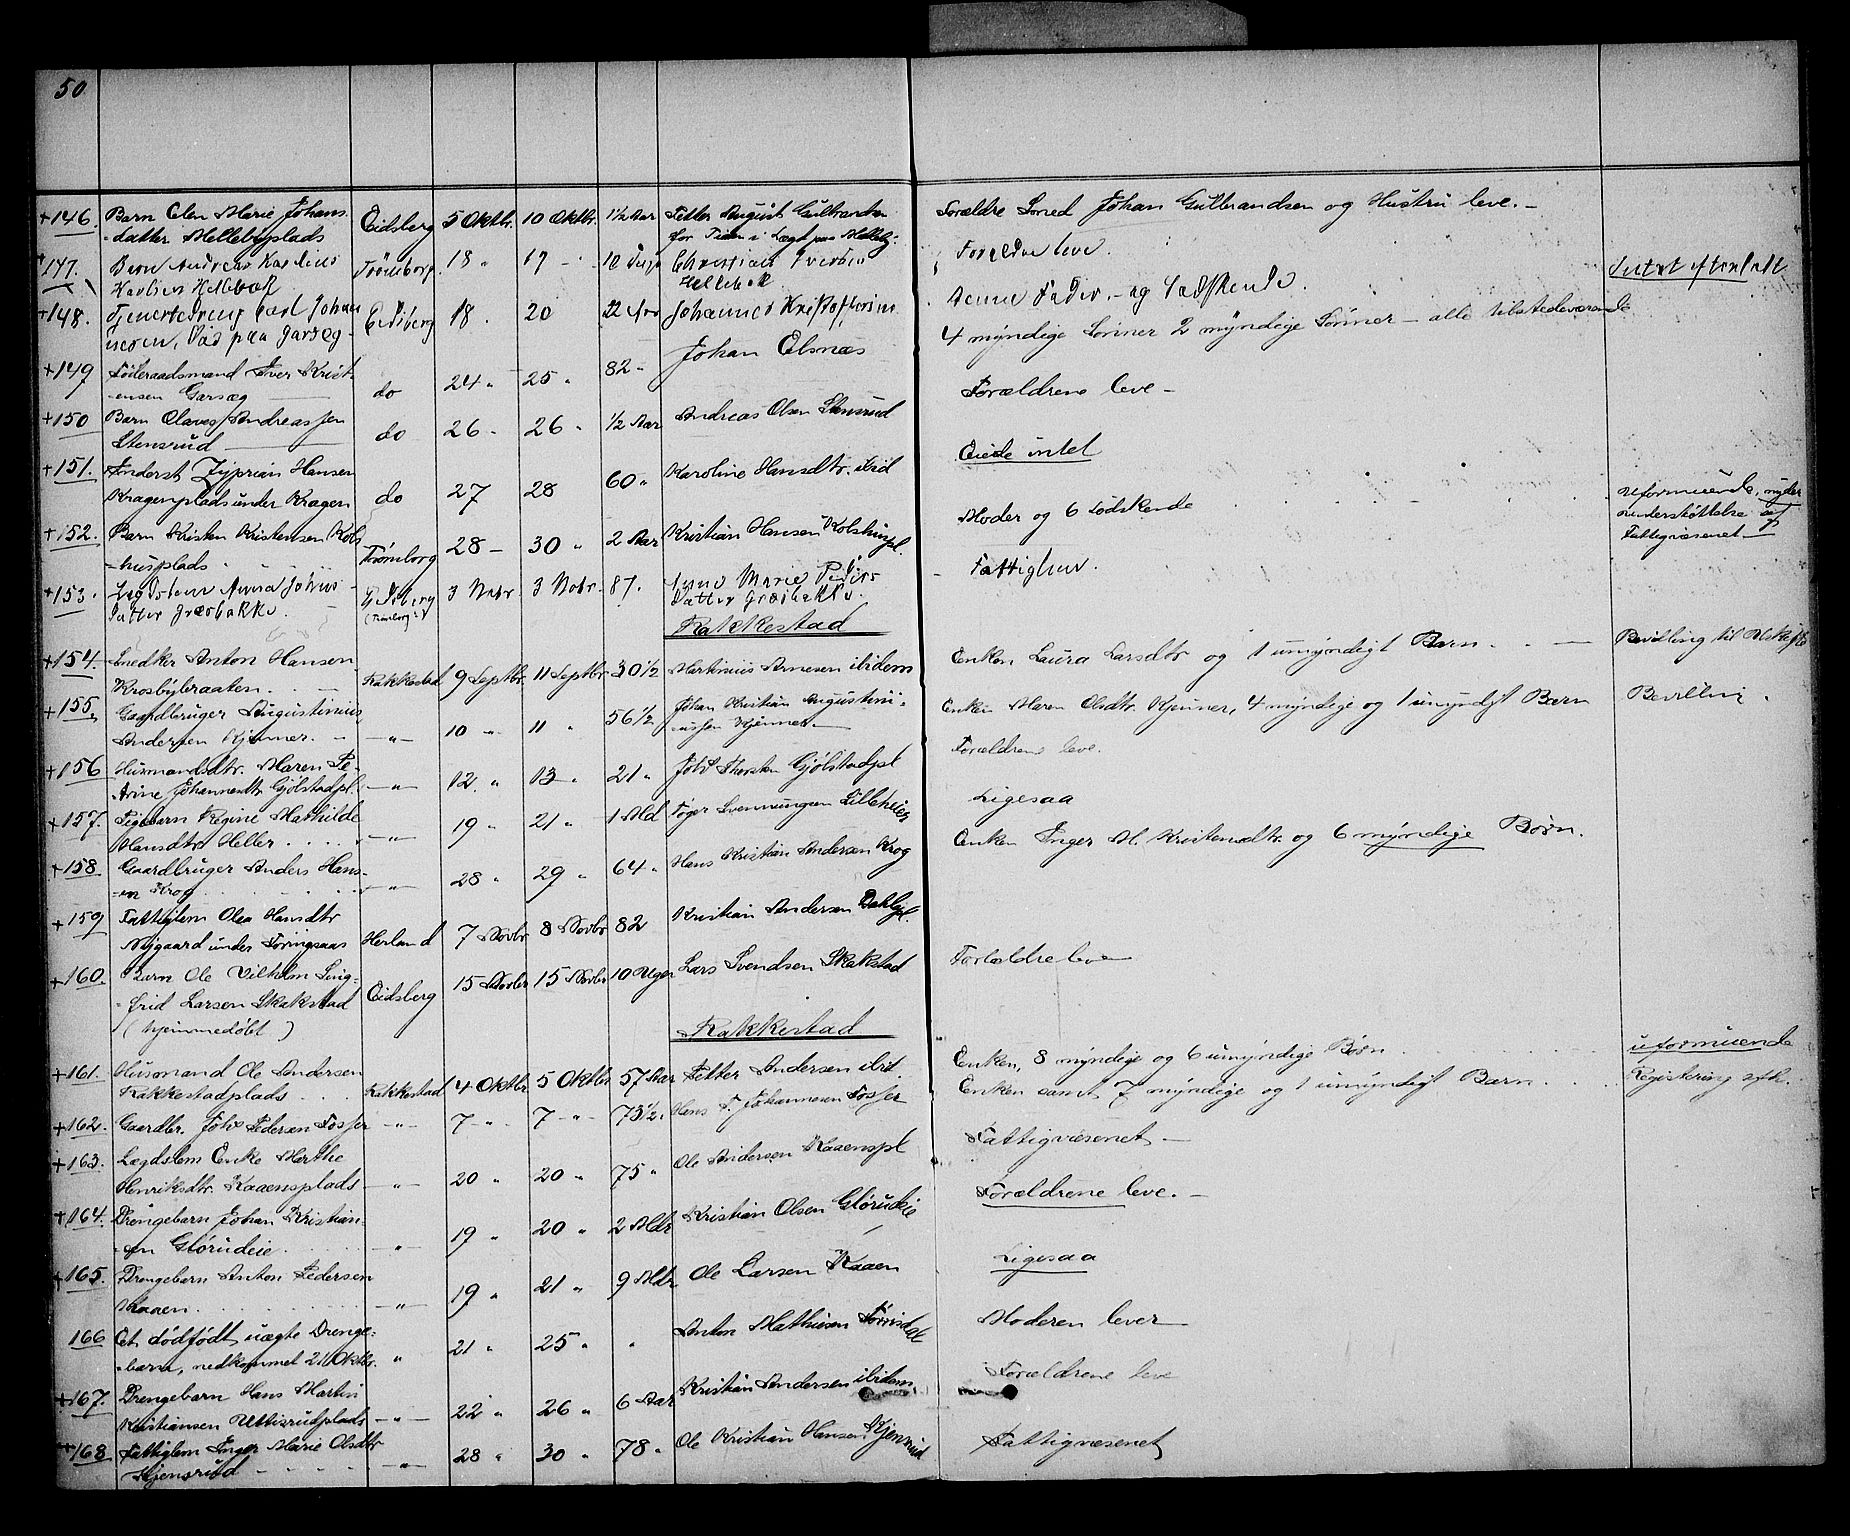 50
+146. Barn Elen Marie Johans- Eidsberg 5 Oktbr. 10 Oktbr. 1½ Aar Fetter August Gulbrandsen Forældre Smed Johan Gulbrandsen og Hustru leve. -
datter Mellebyplads for Tiden i Lægd paa Melleby.
+147. Barn Andreas Karelius Trømborg 18 " 19 - 12 Dage Christian Iversen Forældre leve. Intet efterladt
Karlsen Hellebæk Hellebæk
+148. Tjenestedreng Carl Johan Eidsberg 18. 20 22 Aar Johannes Kristoffersen Fader - og Sødskende.
paa Garseg -
+149 Føderaadsmand Iver Krist- do 24 " 25 " 82 - Johan Elsnæs 4 myndige Sønner 2 myndige Sønner - alle tilstedeværende
ensen Garsæg
+150 Barn Olaves Andreassen do 26 - 26 " ½ Aar Andreas Olsen Stensrud Forældrene leve -
Stensrud
+151. Inderst Zyprian Hansen do 27 28 60 " Karoline Hansdtr. ibid Eiede intet
Kragenplads under Kragen
+152. Barn Kristen Kristensen Kols- Trømborg 28 - 30 " 2 Aar Kristian Hansen Kolshuspl. Moder og 6 Sødskende uformuende, nyder
-husplads understøttelse af
Fattigvæsenet -
+153. Lægdslem Anna Johns- Eidsberg 3 Novbr. 3 Novbr. 87. Anne Marie Peders- Fattighus.
datter Græsbakke. (Trømborg) datter Græsbakke.
Rakkestad
+154. Snedker Anton Hansen Rakkestad 9 Septbr. 11 Septbr. 30½ Martinius Arnesen ibidem Enken Laura Larsdtr og 1 umyndigt Barn. Bevilling til Uskifte
Krosbybraaten.
+155. Gaardbruger Augustinius -"- 10 " 11 " 56½ Johan Kristian Augustini- Enken Maren Olsdtr. Kjenner, 4 myndige og 1 umyndigt Barn Bevilling.
Andersen Kjenner. -ussen Kjenner -
+156 Husmandsdtr. Maren Pe- -"- 12. " 13 " 21 " Johs Thorsten Gjølstadpl Forældrene leve.
-trine Johannesdtr. Gjølstadpl.
+157. Pigebarn Regine Mathilde -"- 19 " 21 " 1 Md Foger Svenningsen Lilleheier Ligesaa
Hansdtr. Heller.
+158 Gaardbruger Anders Hans- -"- 28 " 29 " 64 " Hans Kristian Andersen Krog Enken Inger M. Kristensdtr. og 6 myndige Børn.
-en Krog
+159 Fattiglem Olea Hansdtr Herland 7 Novbr 8 Novbr 82 Kristian Andersen Dahlpl.
Nygaard under Toringsaas
+160. Barn Ole Vilhelm Sing- Eidsberg 15 Novbr 15 Novbr 10 Uger Lars Svendsen Skakstad Forældre leve
-frid Larsen Skakstad
(hjemmedøbt)
Rakkestad
+161. Husmand Ole Andersen Rakkestad 4 Oktbr. 5 Oktbr. 57 Aar Petter Andersen ibid. Enken, 8 myndige og 6 umyndige Børn uformuende
Rakkestadplads.
+162. Gaardbr. Johs Pedersen Fosser -"- 7 -"- 7 -"- 73½. Hans P. Johannesen Fosser Enken samt 7 myndige og 1 umyndigt Barn. Registering
+163. Lægdslem Enke Marthe -"- 20 " 20 " 75 " Ole Andersen Kaaenspl Fattigvæsenet -
Henriksdtr. Kaaensplads
+164. Drengebarn Johan Kristian- -"- 19 " 20 " 2 Mdr Kristian Olsen Glørudeie Forældrene leve. -
-sen Glørudeie.
+165. Drengebarn Anton Pedersen -"- 19 " 21 " 9 Mdr. Ole Larsen Kaaen Ligesaa
Kaaen.
166 Et dødfødt uægte Drenge- " 21 " 25 " " Anton Mathisen Moderen lever
-barn, nedkommet 21 Oktbr.
+167. Drengebarn Hans Martin -"- 22 " 26 " 6 Aar Kristian Andersen ibidem Forældrene leve
Kristiansen Uttisrudplads
+168 Fattiglem Inger Marie Olsdtr -"- 28 " 30 " 78 " Ole Kristian Hansen Kjensrud Fattigvæsenet
Kjensrud